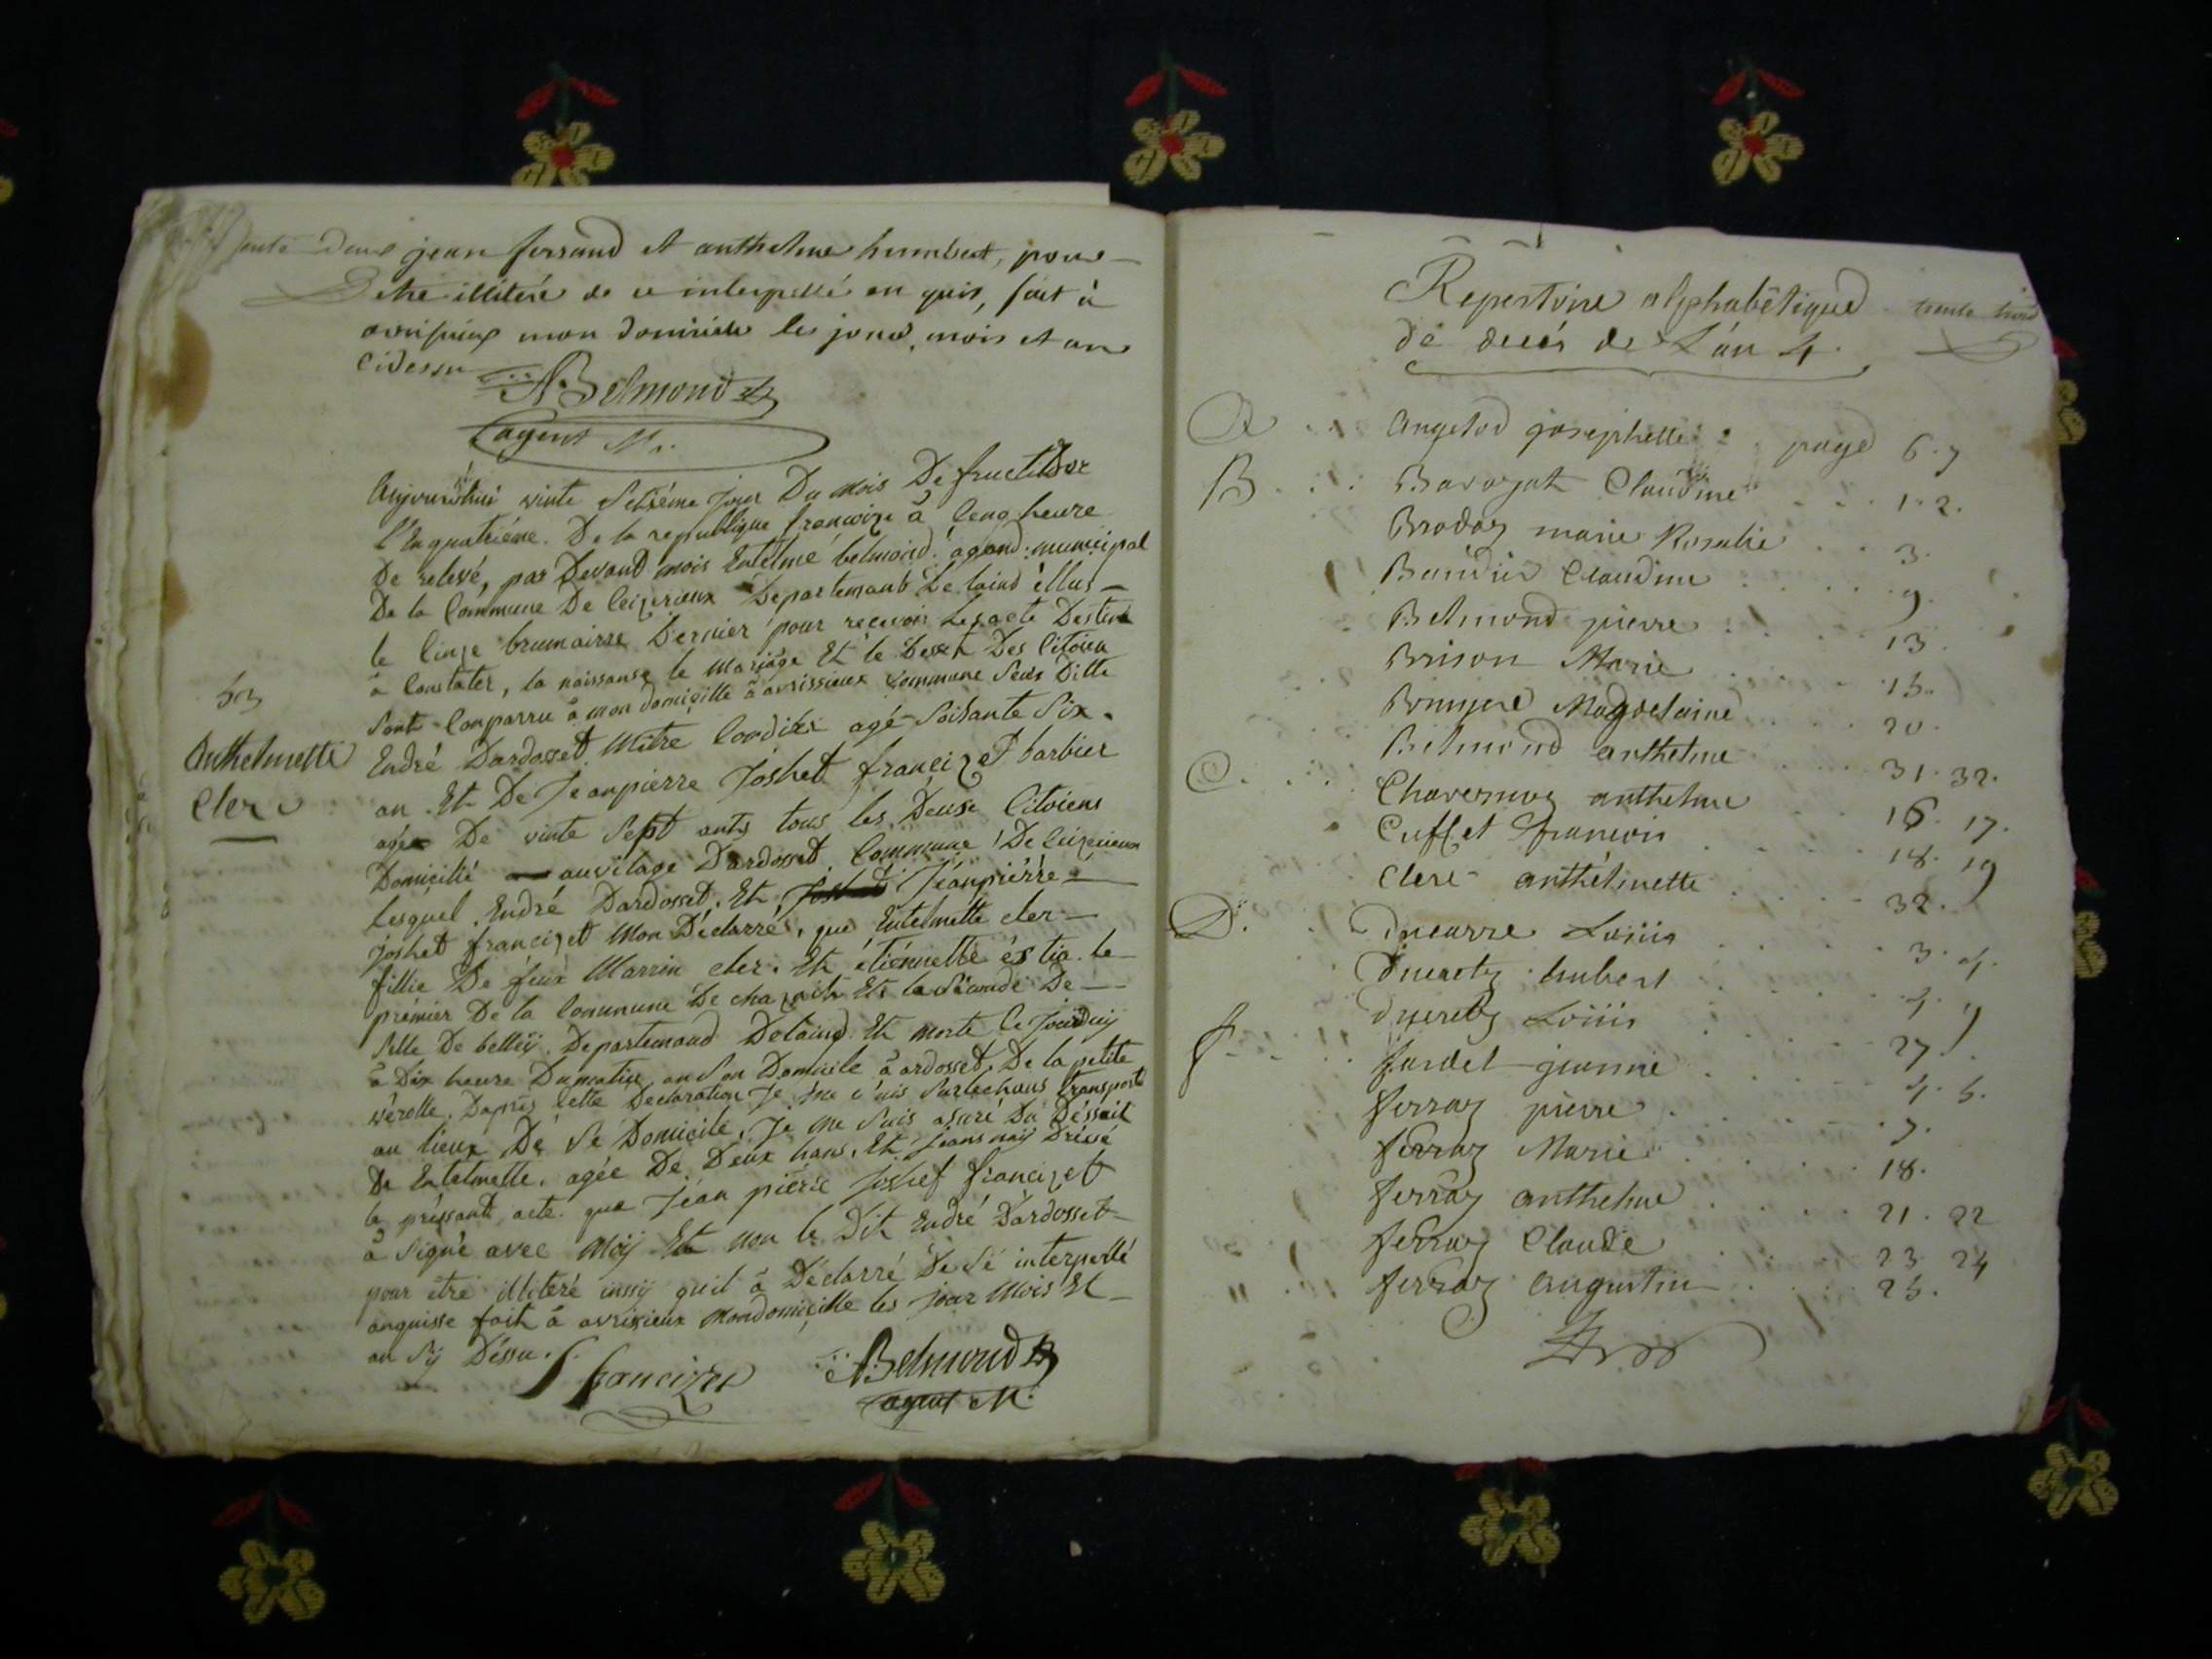 jean ferrand et anthelme humbert, pour
etre illiteré de ce interpellé en quis, fait à
mon domicile le jour, mois et an
cidessu
ABelmond
agent M.
Aujourdhui vinte Setiéme jour Du mois De fructidor
l'Enquatriéme. De la republique francoize à heure
De relevé, par Devant mois Entelme belmond. agand. municipal
De la Commune De Ceizerieux Departemant De laind éllus
le brumairre Dernier pour recevoir Les acte Destiné
à Constater, la naissanse le Mariage Et le Desest Des Citoien
Sont Comparru à mon domicille à avrissieux Commune Seus Ditte
Endré Dardosset. Mitre agé Soisante Six.
an. Et De Jeanpierre Joshet francizet barbier
agée De vinte Sept ants tous les Deuse Citoiens
Domicilié auvilage Dardosset. Commune De Ceizerieux
Lesquel. Endré Dardosset. Et Jeanpiérre
Joshet francizet Mon Déclarré, que Entelmette cler
fillie De feux Marrin cler. Et étiénnette
prémier De la Commune De Et la Séconde De
Selle De belleÿ. Departemand Delaind Et morte Ce
à Dix heure Dumatin an Son Domicile à ardosset De la petite
vérolle. Daprés Cette Declaration Je me Surlechans transporté
au lieux De Se Domicile, Je me Suis asuré Du Déssait
De Entelmette. agée De Deux hans. Et Dréssé
le préssant acte. que Jéan piérre Joshef francizet
à Signé avec Moÿ Et non le Dit Endré Dardosset
pour étre illiteré quil à Déclarré De Sé interpellé
anquisse fait à avrisieux Mondomicille les jour Mois Et
an Sÿ Déssu.
francizet ABelmond
agent M.
53
Anthelmette
Clerc
Repertoire alphabétique trente trois
de decés de L'an 4.
A Angelod josephette page 6. 7
B Bavozat Claudine 1. 2.
Brodaz marie Rosalie 3.
Baudin Claudine 9.
Belmond pierre 13.
Brison Marie 15.
Brunjerd Magdelaine 20.
Belmond anthelme 31. 32.
C Chavernoz anthelme 16. 17.
Cufflet francois 18. 19
Clerc anthélmette 32.
D. Ducarre Louis 3. 4.
Ducretz humbert
Ducretz Louis 27.
f fardel jeanne 4. 5.
ferraz pierre 7.
ferraz Marie 18.
ferraz anthelme 21. 22
ferraz Claude 23 24
ferraz augustin 25.